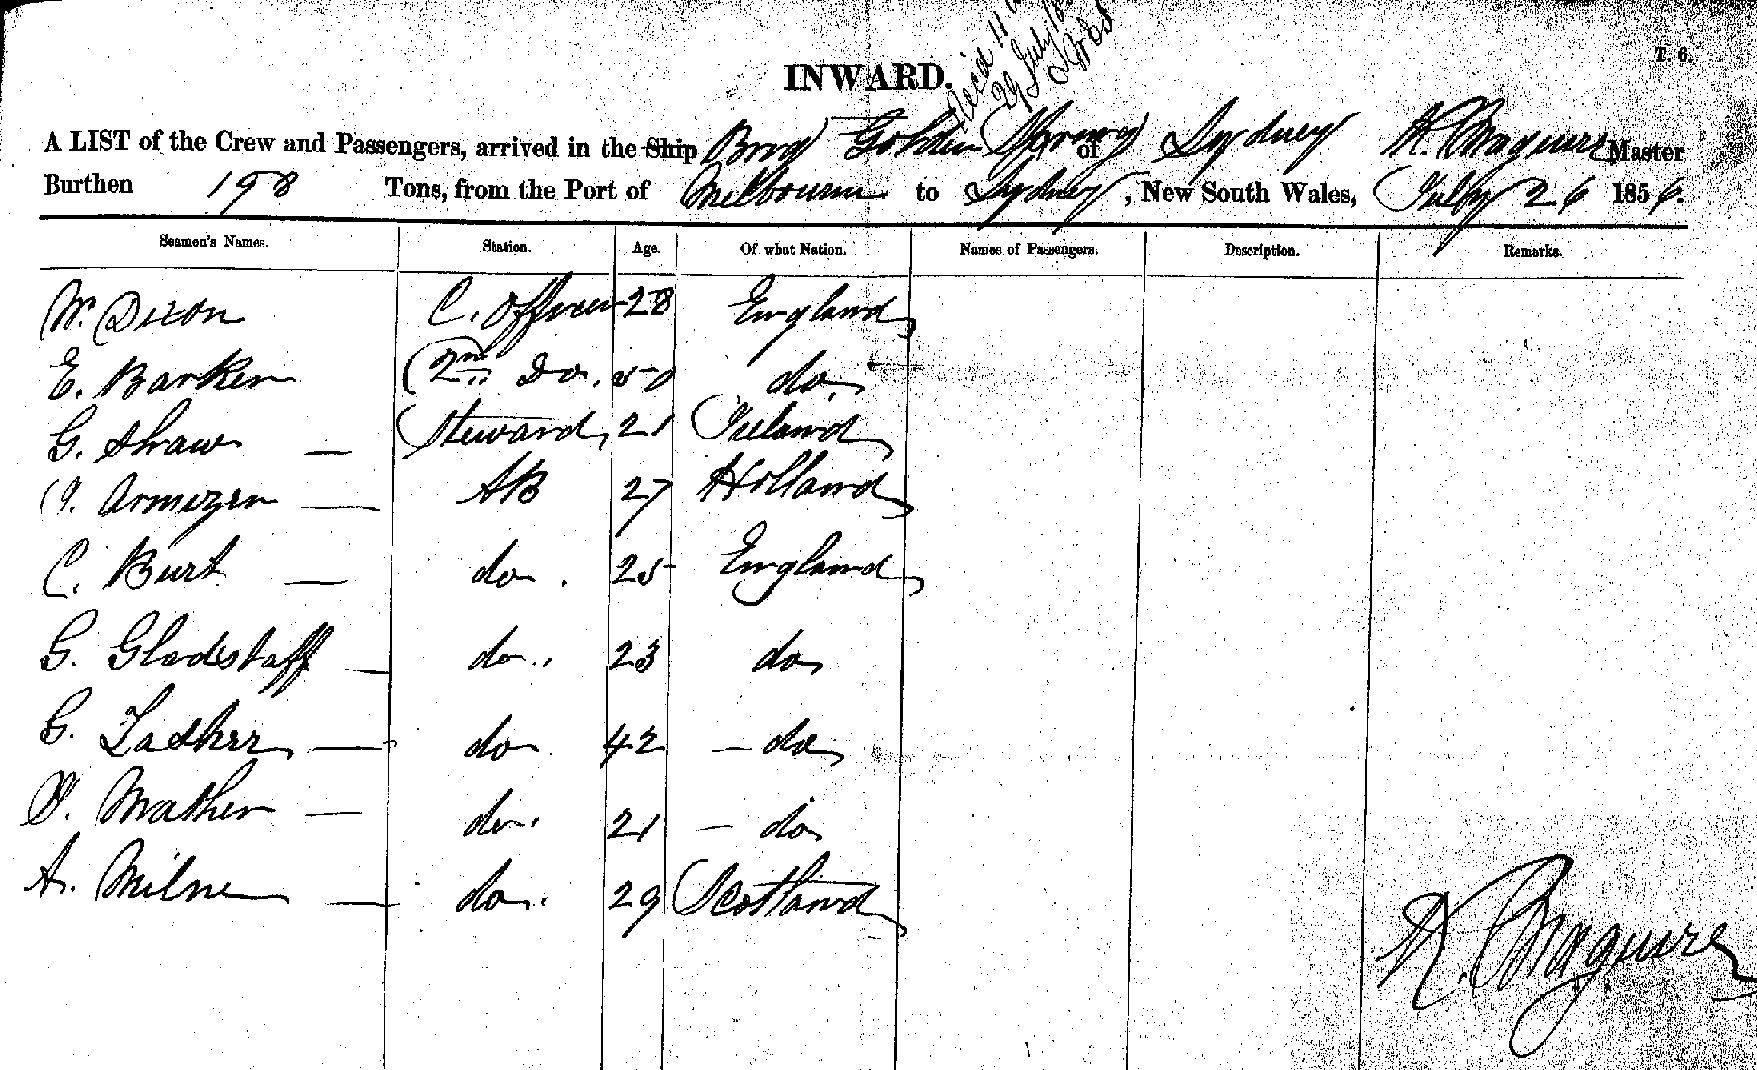 T. 6.
Rec'd 11
29 July
INWARD.
A LIST of the Crew and Passengers, arrived in the Ship Brig Golden Spring of Sydney Maguire Master
Burthen 198 Tons, from the Port of Melbourne to Sydney, New South Wales, July 26 1856.
Seamen's Names. Station. Age. Of what Nation. Names of Passengers. Description. Remarks.
W. Dixon C. Officer 28 England
E. Barker 2nd Do. 50 do
G. Shaw — Steward, 21 Ireland
Armezen — AB 27 Holland
C. Burt — do. 25 England
G. Gladstaff — do.. 23 do
G. — do 42 — do
Mather — do. 21 — do
A. Milne — do. 29 Scotland
Maguire